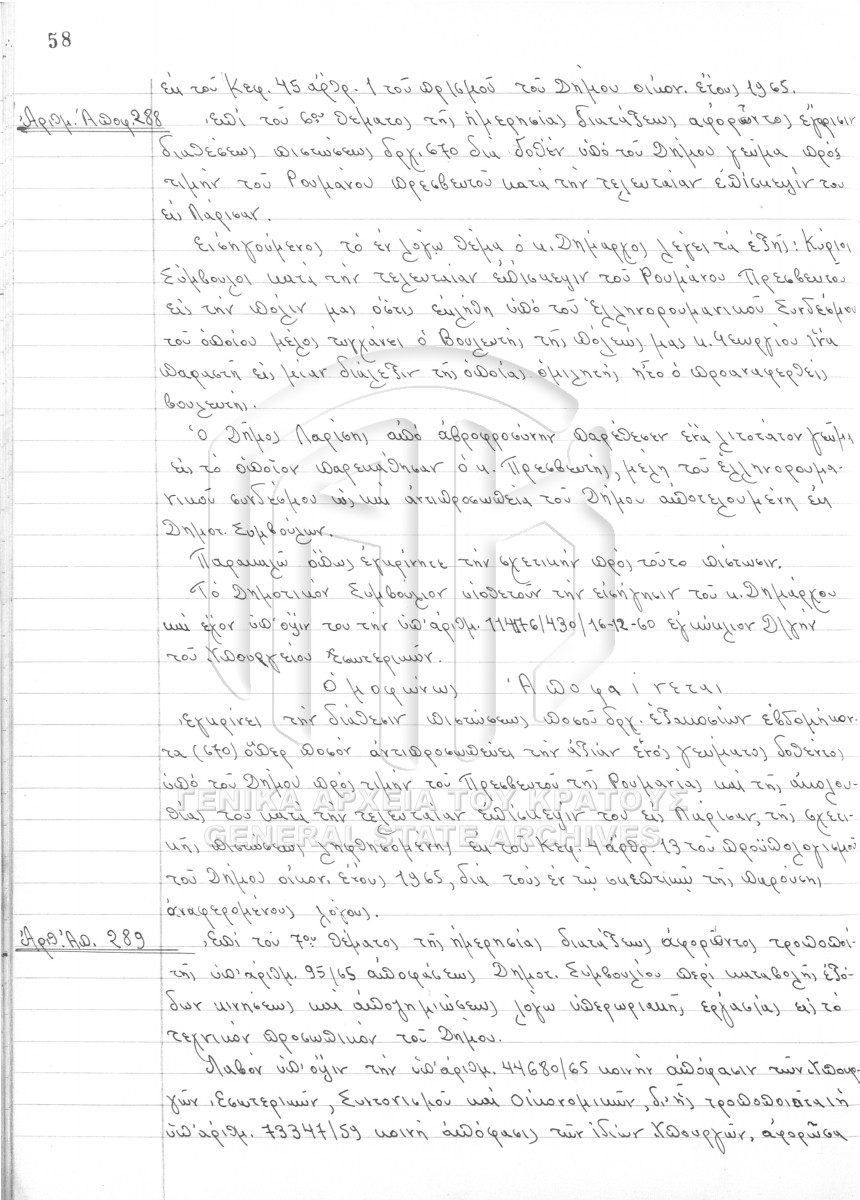 58
ἐκ τοῦ Κεφ. 45 ἄρθρ. 1 τοῦ πρϊσμοῦ τοῦ Δήμου οἰκον. ἔτους 1965.
Ἀριθμ. Ἀποφ. 288
Ἐπί τοῦ 6ου θέματος τῆς ἡμερησίας διατάξεως ἀφορῶντος ἔγκρισιν
διαθέσεως πιστώσεως δρχ. 670 διά δοθέν ὑπό τοῦ Δήμου γεῦμα πρός
τιμήν τοῦ Ρουμάνου πρεσβευτοῦ κατά τήν τελευταίαν ἐπίσκεψίν του
εἰς Λάρισαν.
Εἰσηγούμενος τό ἐν λόγῳ θέμα ὁ κ. Δήμαρχος λέγει τά ἑξῆς: Κύριοι
Σύμβουλοι κατά τήν τελευταίαν ἐπίσκεψιν τοῦ Ρουμάνου Πρεσβευτοῦ
εἰς τήν πόλιν μας ὅστις ἐκλήθη ὑπό τοῦ Ἑλληνορουμανικοῦ Συνδέσμου
τοῦ ὁποίου μέλος τυγχάνει ὁ Βουλευτής τῆς πόλεώς μας κ. Γεωργίου ἵνα
παραστῆ εἰς μιαν διάλεξιν τῆς ὁποίας ὁμιλητής ἦτο ὁ προαναφερθείς
βουλευτής.
Ὁ Δῆμος Λαρίσης ἀπό ἁβροφροσύνην παρέθεσεν ἕνα λιτότατον γεῦμα
εἰς τό ὁποῖον παρεκάθησαν ὁ κ. Πρεσβευτής, μέλη τοῦ ἑλληνορουμα-
νικοῦ συνδέσμου ὡς καί ἀντιπροσωπεία τοῦ Δήμου ἀποτελουμένη ἐκ
Δημοτ. Συμβούλων.
Παρακαλῶ ὅπως ἐγκρίνητε τήν σχετικήν πρός τοῦτο πίστωσιν.
Τό Δημοτικόν Συμβούλιον υἱοθετοῦν τήν εἰσήγησιν τοῦ κ. Δημάρχου
καί ἔχον ὑπ' ὄψιν του τήν ὑπ' ἀριθμ. 11476/430/16-12-60 ἐγκύκλιον Δ/γήν
τοῦ Ὑπουργείου Ἐσωτερικῶν.
Ὁμοφώνως Ἀποφαίνεται
Ἐγκρίνει τήν διάθεσιν πιστώσεως ποσοῦ δρχ. ἑξακοσίων ἑβδομήκον-
τα (670) ὅπερ ποσόν ἀντιπροσωπεύει τήν ἀξίαν ἑνός γεύματος δοθέντος
ὑπό τοῦ Δήμου πρός τιμήν τοῦ Πρεσβευτοῦ τῆς Ρουμανίας καί τῆς ἀκολου-
θίας του κατά τήν τελευταίαν ἐπίσκεψιν του εἰς Λάρισαν, τῆς σχετι-
κῆς πιστώσεως ληφθησομένης ἐκ τοῦ Κεφ. 4 ἄρθρ. 13 τοῦ προϋπολογισμοῦ
τοῦ Δήμου οἰκον. ἔτους 1965, διά τούς ἐν τῷ σκεπτικῷ τῆς παρούσης
ἀναφερομένους λόγους.
Ἀρθ. Ἀπ. 289
Ἐπί τοῦ 7ου θέματος τῆς ἡμερησίας διατάξεως ἀφορῶντος τροποποί-
τῆς ὑπ' ἀριθμ. 95/65 ἀποφάσεως Δημοτ. Συμβουλίου περί καταβολῆς ἐξό-
δων κινήσεως καί ἀποζημιώσεως λόγω ὑπερωριακῆς ἐργασίας εἰς τό
τεχνικόν προσωπικόν τοῦ Δήμου.
Λαβόν ὑπ' ὄψιν τήν ὑπ' ἀριθμ. 44680/65 κοινήν ἀπόφασιν τῶν Ὑπουρ-
γῶν Ἐσωτερικῶν, Συντονισμοῦ καί Οἰκονομικῶν, δι' ἧς τροποποιεῖται ἡ
ὑπ' ἀριθμ. 73347/59 κοινή ἀπόφασις τῶν ἰδίων Ὑπουργῶν, ἀφορῶσα
ΓΕΝΙΚΑ ΑΡΧΕΙΑ ΤΟΥ ΚΡΑΤΟΥΣ
GENERAL STATE ARCHIVES